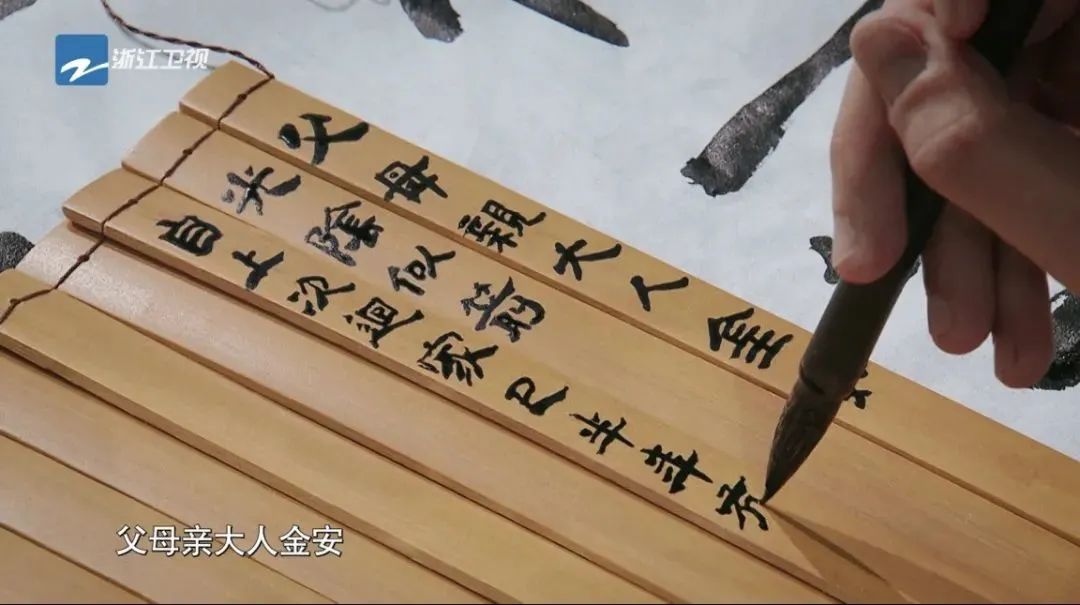 浙江卫视
父母親大人金
光陰似箭
自上次迴家已半年
父母亲大人金安